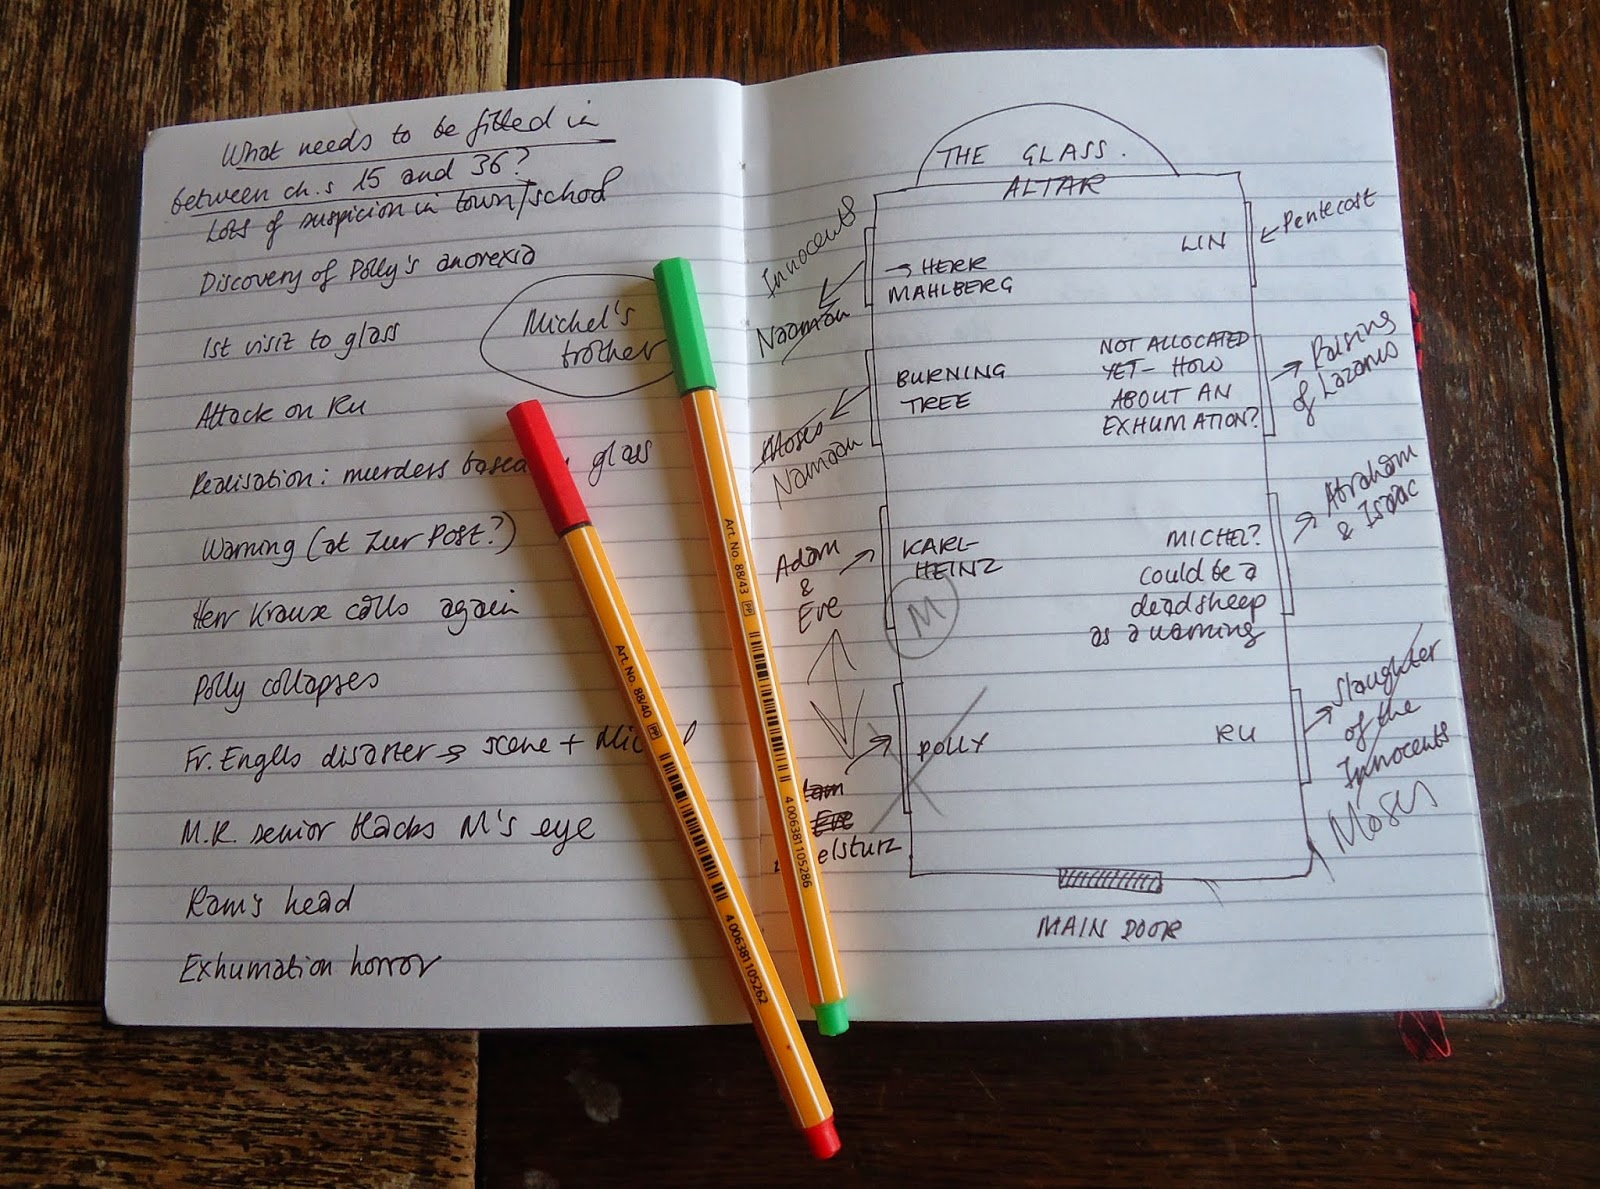 What needs to be filled in
between ch.s 15 and 36?
Lots of suspicion in town/school
Discovery of Polly's anorexia
1st visit to glass
Michel's
brother
Attack on Ru
Realisation: murders based glass
Warning (at Zur Post?)
Herr Kraux calls again
Polly collapses
Fr. Englls disaster → scene +
M.R. senior blacks M's eye
Ram's head
Exhumation horror
Art. No. 88/43 PP
4 006381 105286
Art. No. 88/40 PP
4 006381 105262
THE GLASS.
ALTAR
Innocents
Naaman
→ HERR
MAHLBERG
LIN
← Pentecost
BURNING
TREE
Moses
Namaan
NOT ALLOCATED
YET – HOW
ABOUT AN
EXHUMATION?
→ Raising
of Lazarus
Adam
&
Eve
KARL-
HEINZ
M
MICHEL?
could be a
dead sheep
as a warning
→ Abraham
& Isaac
POLLY
Eve
elsturz
RU
Slaughter
of the
Innocents
Moses
MAIN DOOR